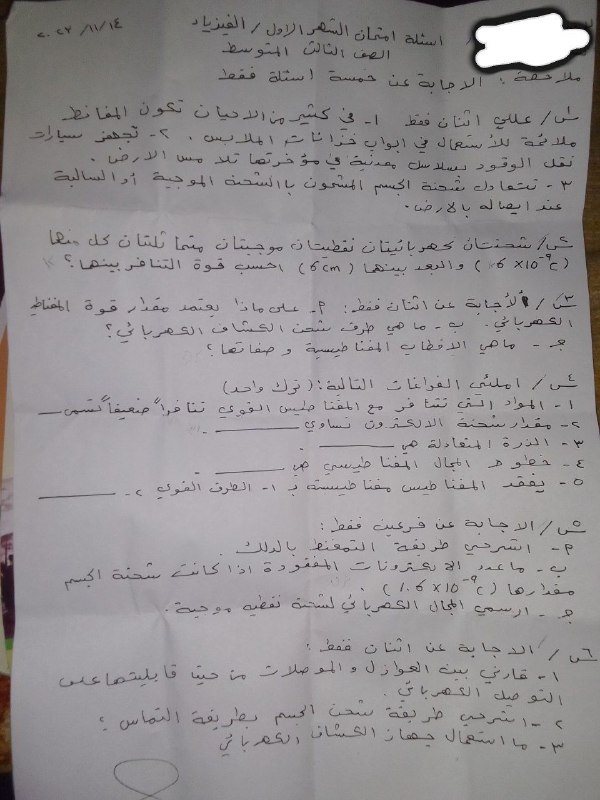 اسئلة امتحان الشهر الاول / الفيزياء ٢٠٢٣/١١/١٤
الصف الثالث المتوسط
ملاحظة : الاجابة عن خمسة اسئلة فقط
س١/ عللي اثنان فقط ١- في كثير من الاحيان تكون المغانط
ملائمة للأستعمال في ابواب خزانات الملابس . ٢- تجهز سيارات
نقل الوقود بسلاسل معدنية في مؤخرتها تلامس الارض .
٣- تتعادل شحنة الجسم المشحون باالشحنة الموجبة أو السالبة
عند ايصاله بالارض .
س٢/ شحنتان كهربائيتان نقطيتان موجبتان متماثلتان كل منها
(6×10⁻⁹c) والبعد بينهما (6cm) احسب قوة التنافر بينهما ؟
س٣/ الأجابة عن اثنان فقط : م- على ماذا يعتمد مقدار قوة المغناطيس
الكهربائي . ب- ما هي طرق شحن الكشاف الكهربائي ؟
جـ - ماهي الاقطاب المغناطيسية وصفاتها ؟
س٤/ املئي الفراغات التالية : (ترك واحد)
١- المواد التي تتنافر مع المغناطيس القوي تنافراً ضعيفاً تسمى ـــــ
٢- مقدار شحنة الالكترون تساوي ـــــ .
٣- الذرة المتعادلة هي ـــــ .
٤- خطوط المجال المغناطيسي هي ـــــ .
٥- يفقد المغناطيس مغناطيسته بـ ١- الطرق القوي ٢- ـــــ
س٥/ الاجابة عن فرعين فقط :
م- اشرحي طريقة التمغنط بالدلك .
ب- ماعدد الالكترونات المفقودة اذا كانت شحنة الجسم
مقدارها (1.6×10⁻⁹c) .
جـ - ارسمي المجال الكهربائي لشحنة نقطيه موجبة .
س٦/ الاجابة عن اثنان فقط :
١- قارني بين العوازل والموصلات من حيث قابليتها على
التوصيل الكهربائي .
٢- اشرحي طريقة شحن الجسم بطريقة التماس ؟
٣- ما استعمال جهاز الكشاف الكهربائي